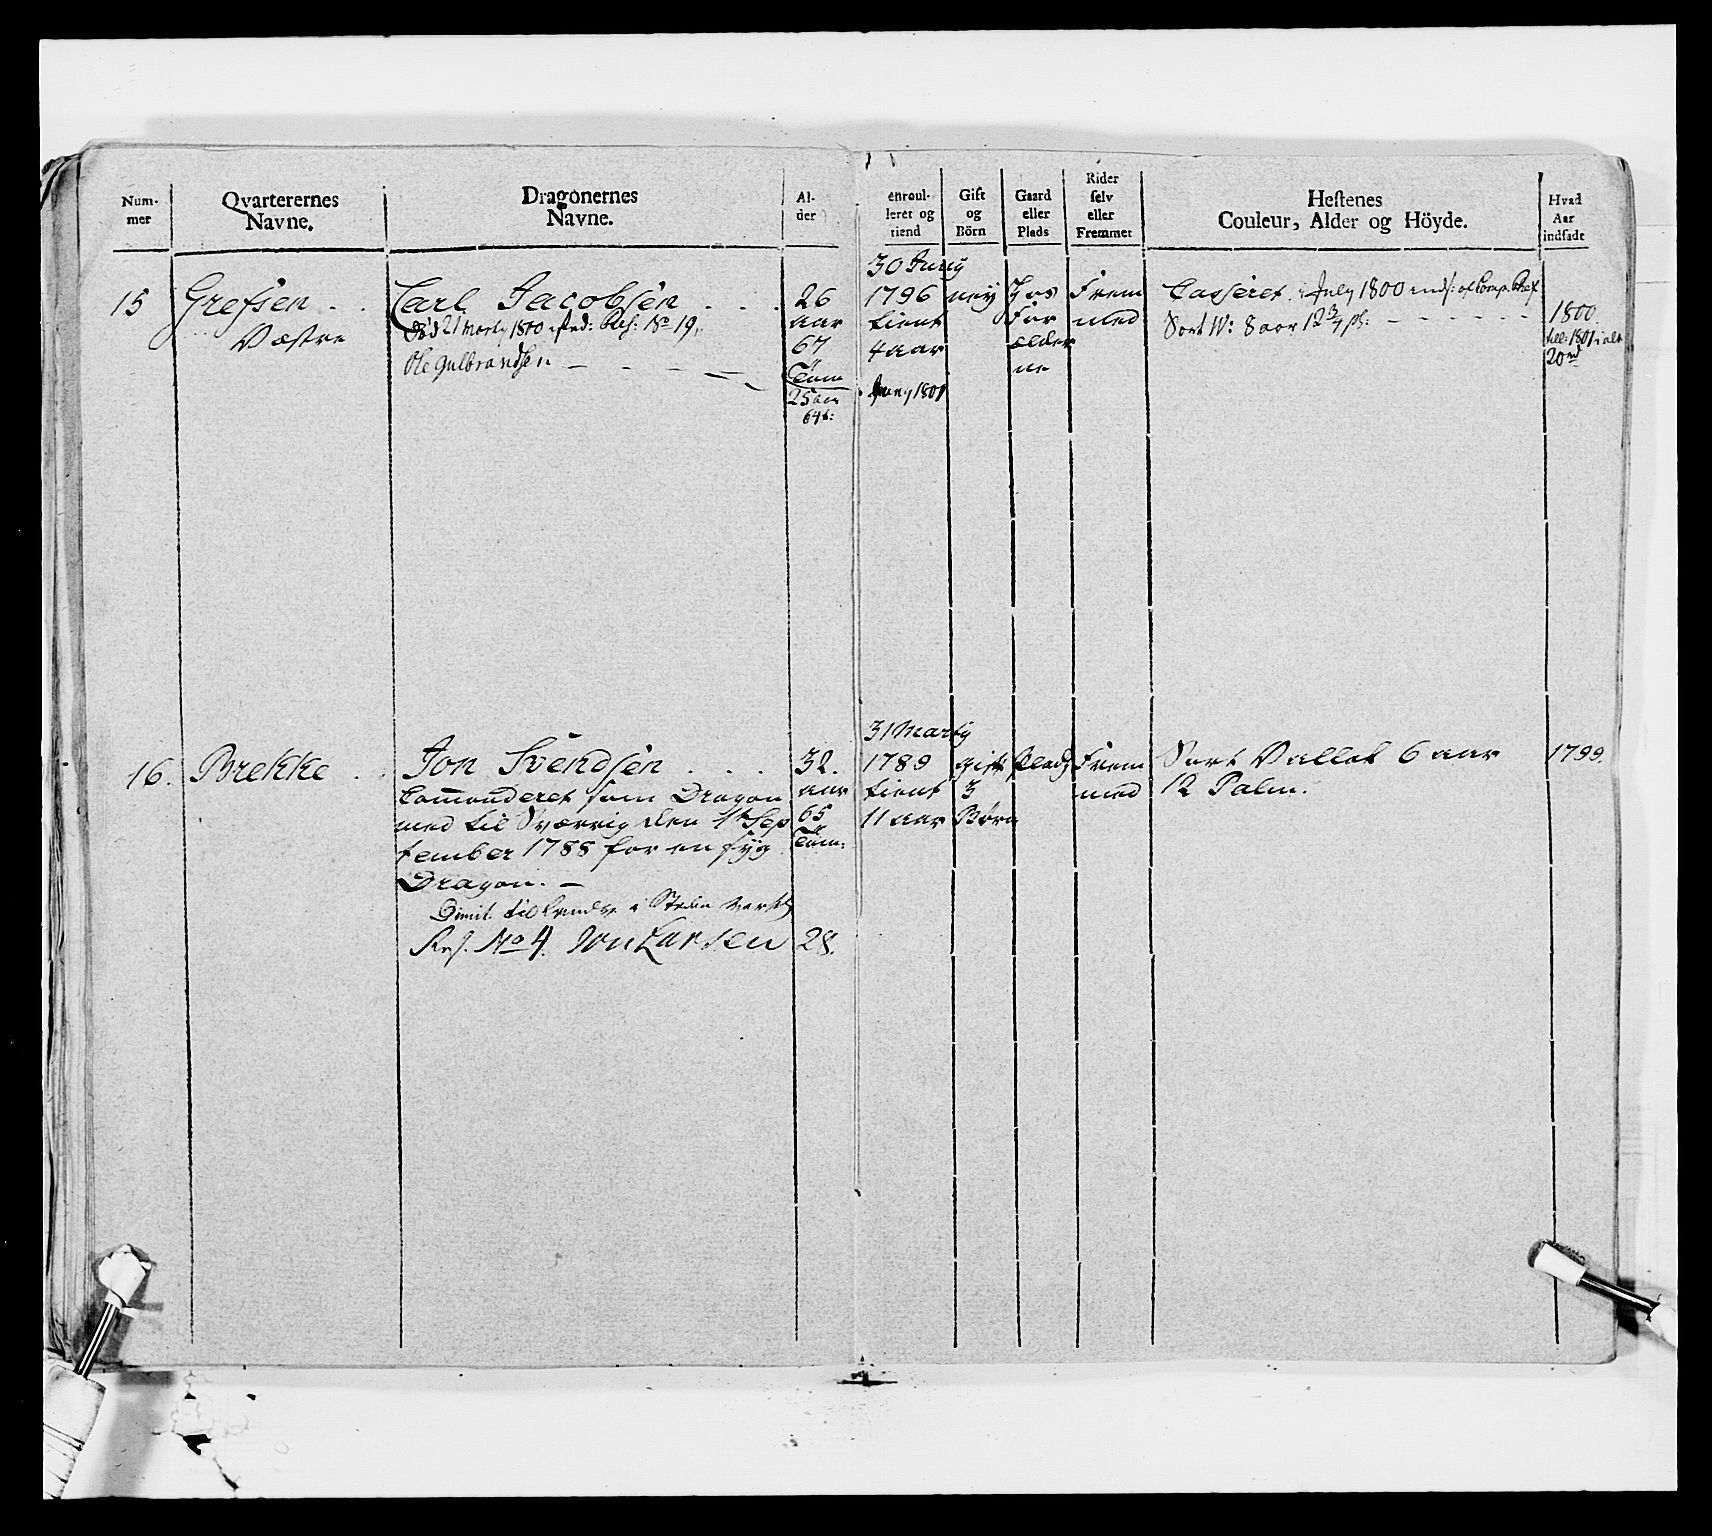 Num-
mer
Qvarterernes
Navne.
Dragonernes
Navne.
Al-
der
enroul-
leret og
tiend
Gift
og
Börn
Gaard
eller
Plads
Rider
selv
eller
Fremmet
Hestenes
Couleur, Alder og Höyde.
Hvad
Aar
indsadt
15
Grefsen
Væstre
Carl Jacobsen
Død 21 Marty 1800 Res: No 19,
Ole Gulbrandsen
26
aar
67
Tom
25 aar
64
30 Juny
1796
tient
4 aar
Juny 1801
ney
Hos
For
ælder
ne
Frem
med
Casseret July 1800 Comp. Chef
Sort W: 8 aar 12 3/4 pl:
1800
1801
20
16.
Brekke
Jon Svendsen
Comanderet som Dragon
med til Sværrig den 1te Sep
tember 1788 for en syg
Dragon.
Dimit. til
Res. No 4. Jon Larsen
32.
aar
65
Tom:
28.
31 Marty
1789
tient
11 aar
gift
3
Börn
Plads
Frem
med
Sort Vallak 6 aar
12 Palm.
1799.